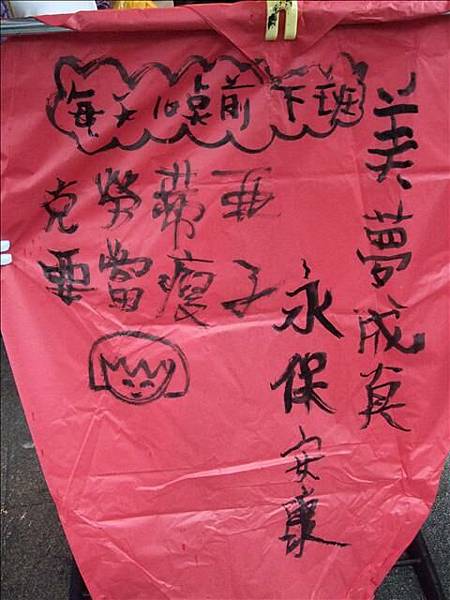 每天10点前下班
美夢成真
永保安康
克勞蒂亞
要當瘦子